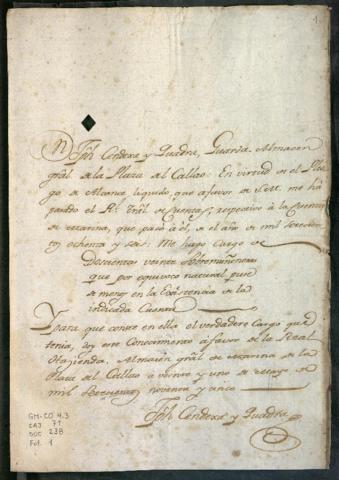 1
Dn Jph Cendexa y Quadra, Guarda Almacen
gral de la Plaza del Callao: En virtud de el Plie
go de Alcance liquido, que a favor de S. M. me ha
pasado el Rl. Tral de Cuentas, respectivo à la Cuenta
de marina, que pasó à él, de el año de mil setecien
tos ochenta y seis: Me hago Cargo de
Doscientos veinte
que por equivoco natural puse
de menos en la Existencia de la
indicada Cuenta
Y para que conste en ella el verdadero Cargo que
tenia, doy este Conocimiento à favor de la Real
Hazienda. Almazén gral de marina de la
Plaza del Callao à veinte y uno de de
mil setecientos noventa y uno
Jph Cendexa y Quadra
GM-CO 4.3
CAJ 71
DOC 238
Fol. 1